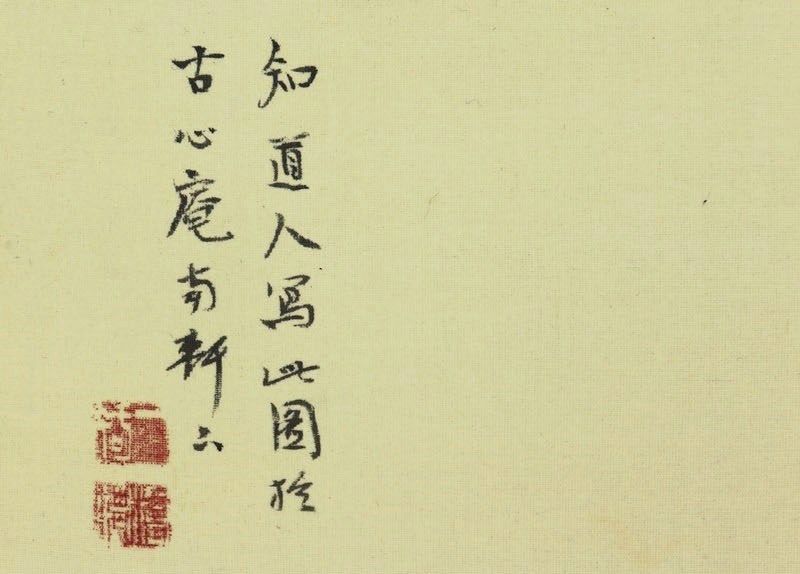 知道人寫此圖於
古心庵南軒